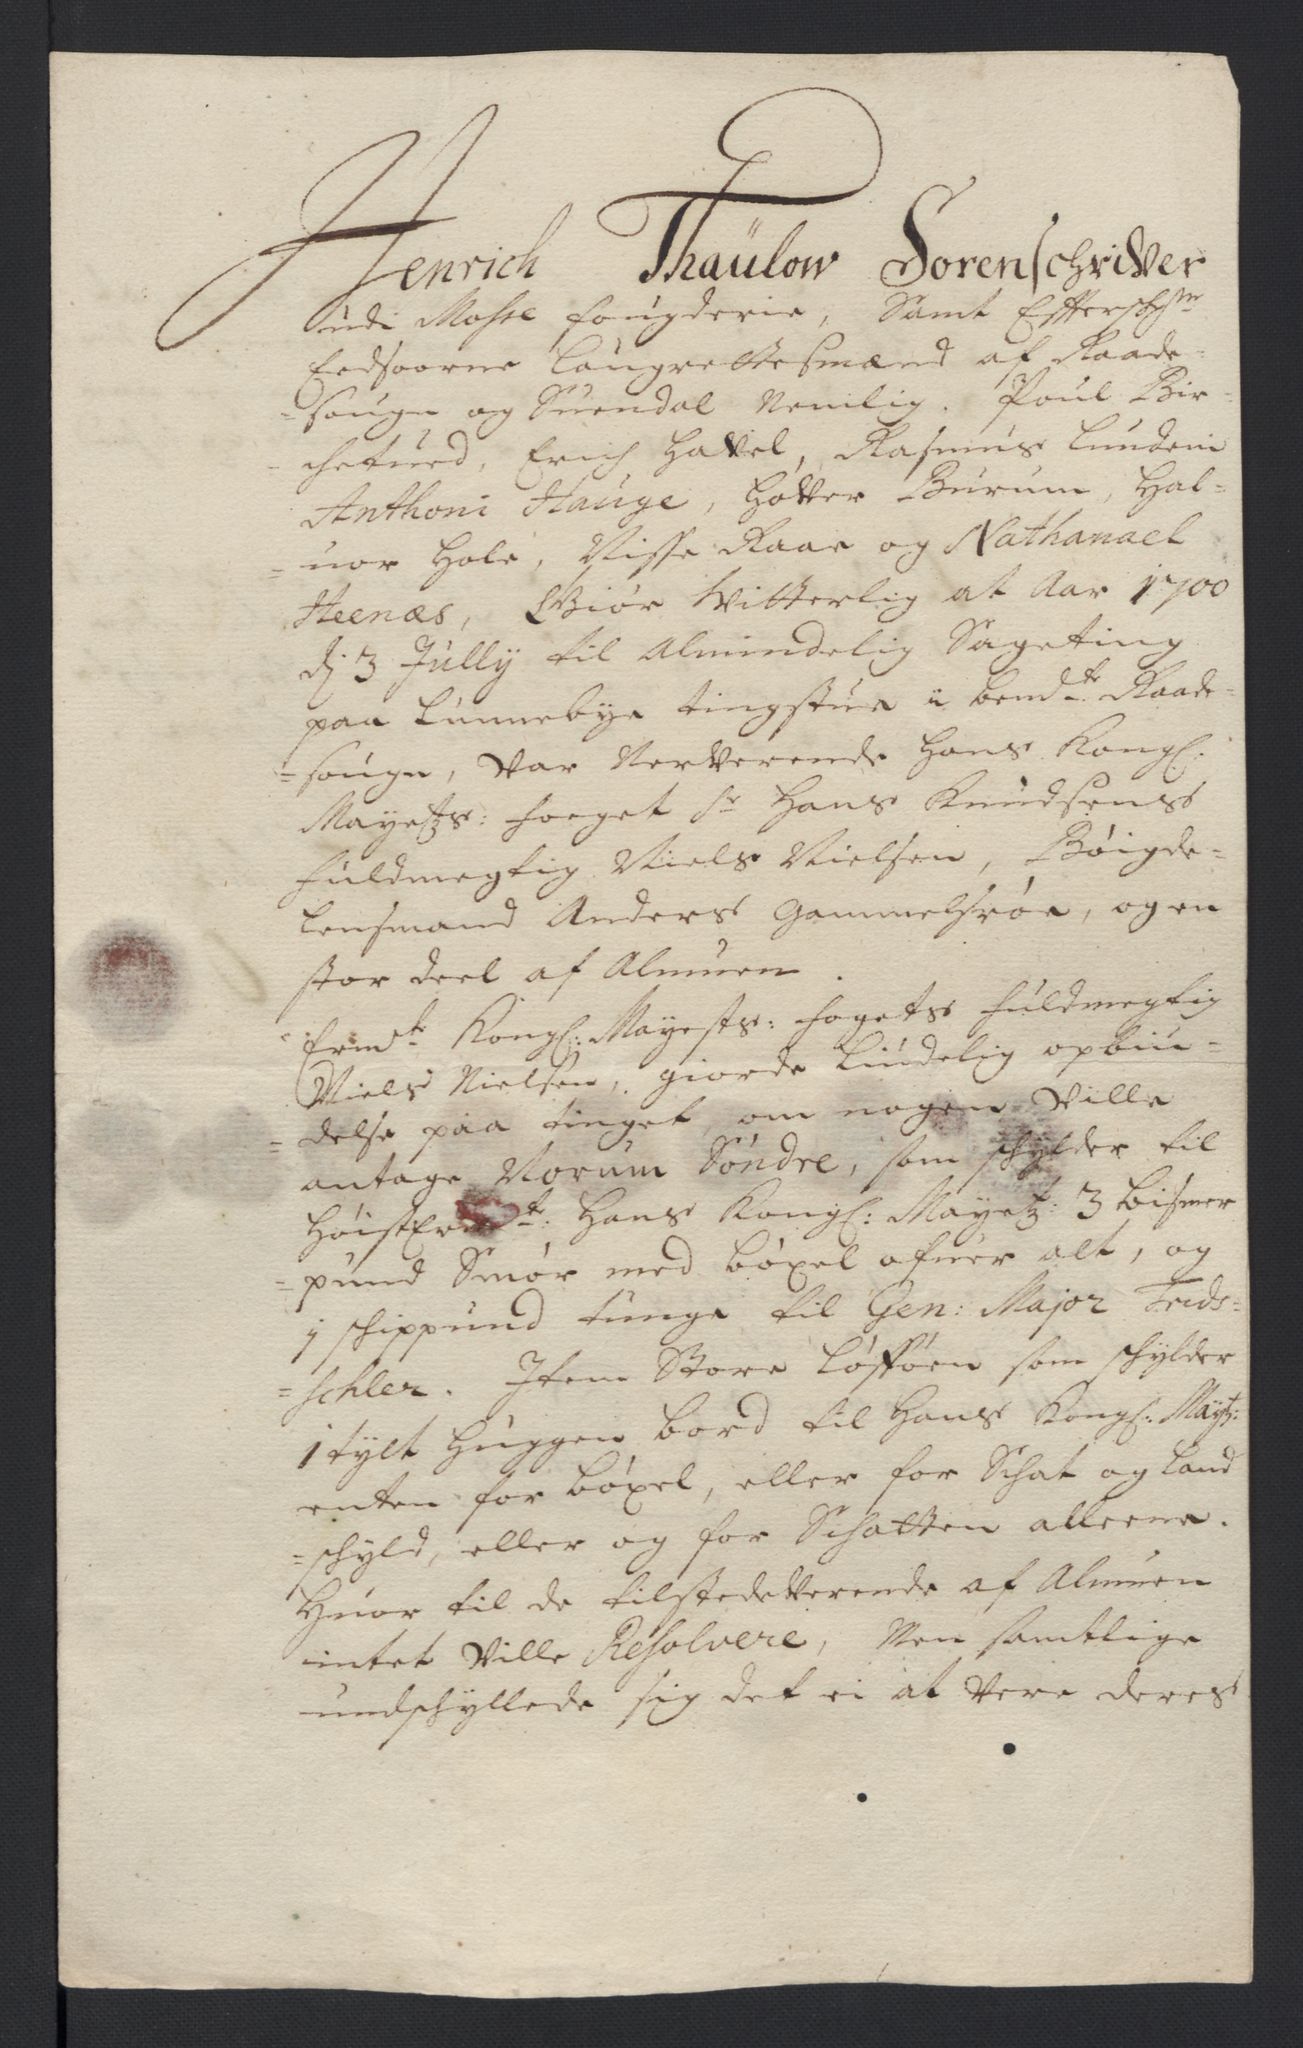 Henrich Thaülow Sorenschriver
udi Mosse fougderie, Samt Effterschr.ne
Eedsoorne Laugrettesmænd af Raade-
-sougn og Suendal Nemlig. Poul Bir-
-chetued, Erich Havel, Rasmus Lundem
Anthoni Hauge, Hover Burum, Hal-
-uor Hole, Nisse Raae og Nathanael
Heenæs, Giör Witterlig at Aar 1700
dj 3 Jully til Almindelig Sageting
paa Lunnebye tingstue i bemd.te Raade-
-sougn, var Nerverende Hans Kongl.
Mayetz: Foeget Sr Hans Knudsens
fuldmegtig Niels Nielsen, Böigde-
Lensmand Anders Gammelsröe, og en
stor deel af Almuen.
Ermte Kongl: Mayests: fogets fuldmegtig
Niels Nielsen, giorde Liudelig opbiu-
-delse paa tinget, om nogen ville
antage Norum Söndre, som schylder til
HöistErmte: Hans Kongl: Mayetz: 3 bismer
-pund Smör med böxel ofuer alt, og
j schippund tunge til Gen: Major Trids-
-schler. Item Store Löfföen som schylder
1 tylt Huggen bord til Hans Kongl: Maytz:
enten for böxel, eller for Schat og Land
-schyld, eller og for Schatten alleene.
Huor til de tilstedeverende af Almuen
intet ville Resolvere, Men samtlige
undschyllede sig det ei at vere deres